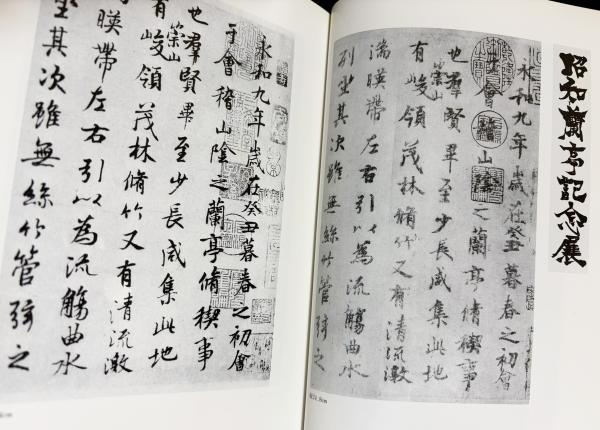 昭和蘭亭記念展
永和九年歲在癸丑暮春之初會
于會稽山陰之蘭亭脩稧事
也羣賢畢至少長咸集此地
有崇山峻領茂林脩竹又有清流激
湍暎帶左右引以為流觴曲水
列坐其次雖無絲竹管弦之
永和九年歲在癸丑暮春之初會
于會稽山陰之蘭亭脩稧事
也羣賢畢至少長咸集此地
有崇山峻領茂林脩竹又有清流激
暎帶左右引以為流觴曲水
坐其次雖無絲竹管弦之